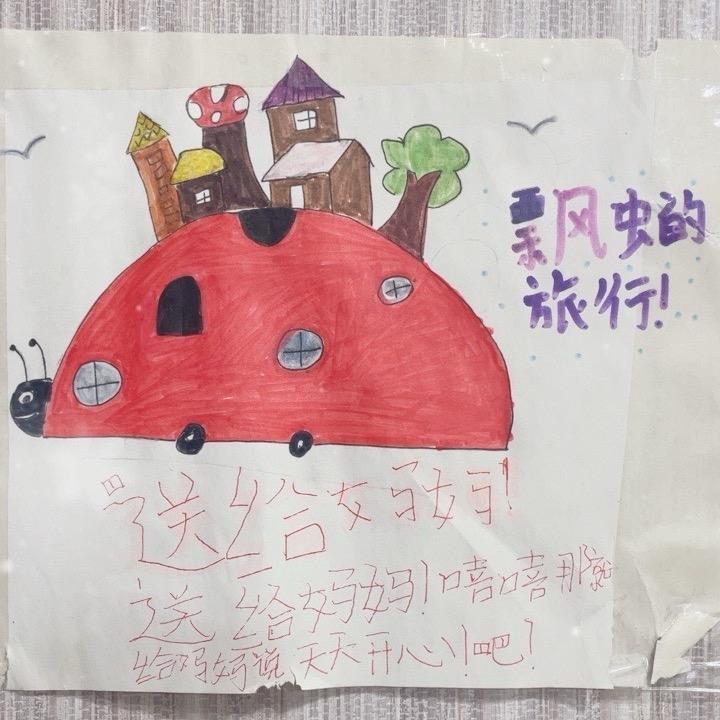 飘风虫的
旅行!
送给妈妈!
送给妈妈!嘻嘻那就
给妈妈说天天开心!吧!